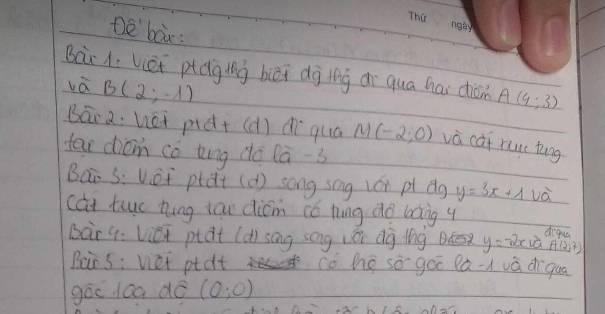 Thứ ngày
Đề bài:
Bài 1: Viết ptđg thg biết đg thg đi qua hai điểm A(4;3)
và B(2;-1)
Bài 2: Viết ptđt (d) đi qua M(-2;0) và cắt trục tung
tại điểm có tung độ là -3
Bài 3: Viết ptđt (d) song song với pt đg y=3x+1 và
cắt trục tung tại điểm có tung độ bằng 4
Bài 4: Viết ptđt (d) song song với đg thg y=-2x và đi qua A(2;7)
Bài 5: Viết ptđt có hệ số góc là -1 và đi qua
gốc toạ độ (0;0)